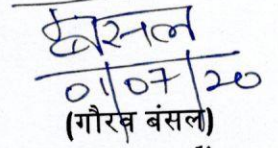 बंसल
01/07/20
(गौरव बंसल)